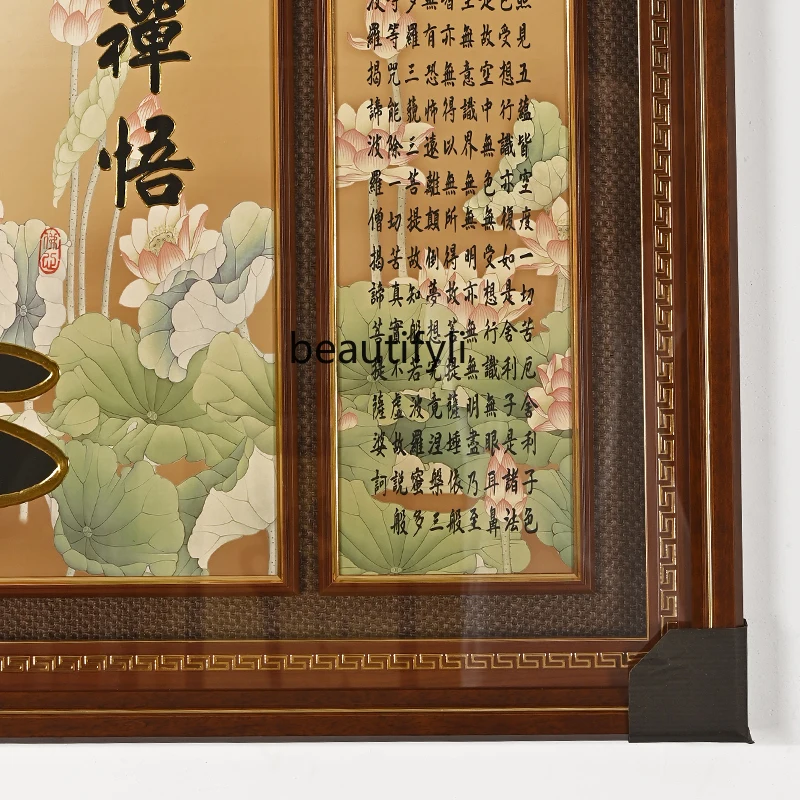 照見五蘊皆空度一切苦厄舍利子色
色受想行識亦復如是舍利子是諸法
是故空中無色無受想行識無眼耳鼻
至無意識界無無明亦無無明盡乃至
智亦無得以無所得故菩提薩埵依般
無有恐怖遠離顛倒夢想究竟涅槃三
多羅三藐三菩提故知般若波羅蜜多
等等咒能除一切苦真實不虛故說般
波羅揭諦波羅僧揭諦菩提薩婆訶
禪悟
beautifyli